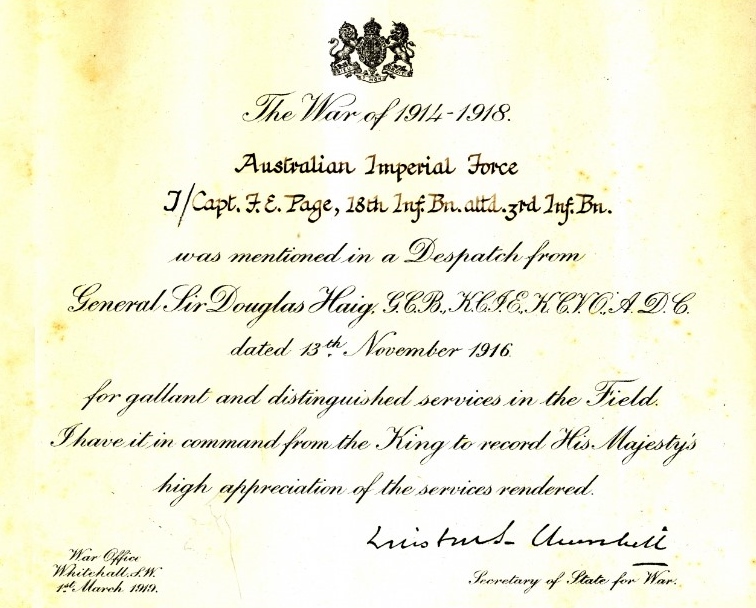 The War of 1914-1918.
Australian Imperial Force
T/Capt. F. E. Page, 18th Inf. Bn. attd. 3rd Inf. Bn.
was mentioned in a Despatch from
General Sir Douglas Haig, G.C.B., K.C.I.E., K.C.V.O., A.D.C.
dated 13th November 1916
for gallant and distinguished services in the Field.
I have it in command from the King to record His Majesty's
high appreciation of the services rendered.
Winston S. Churchill
Secretary of State for War.
War Office
Whitehall, S.W.
1st March 1919.